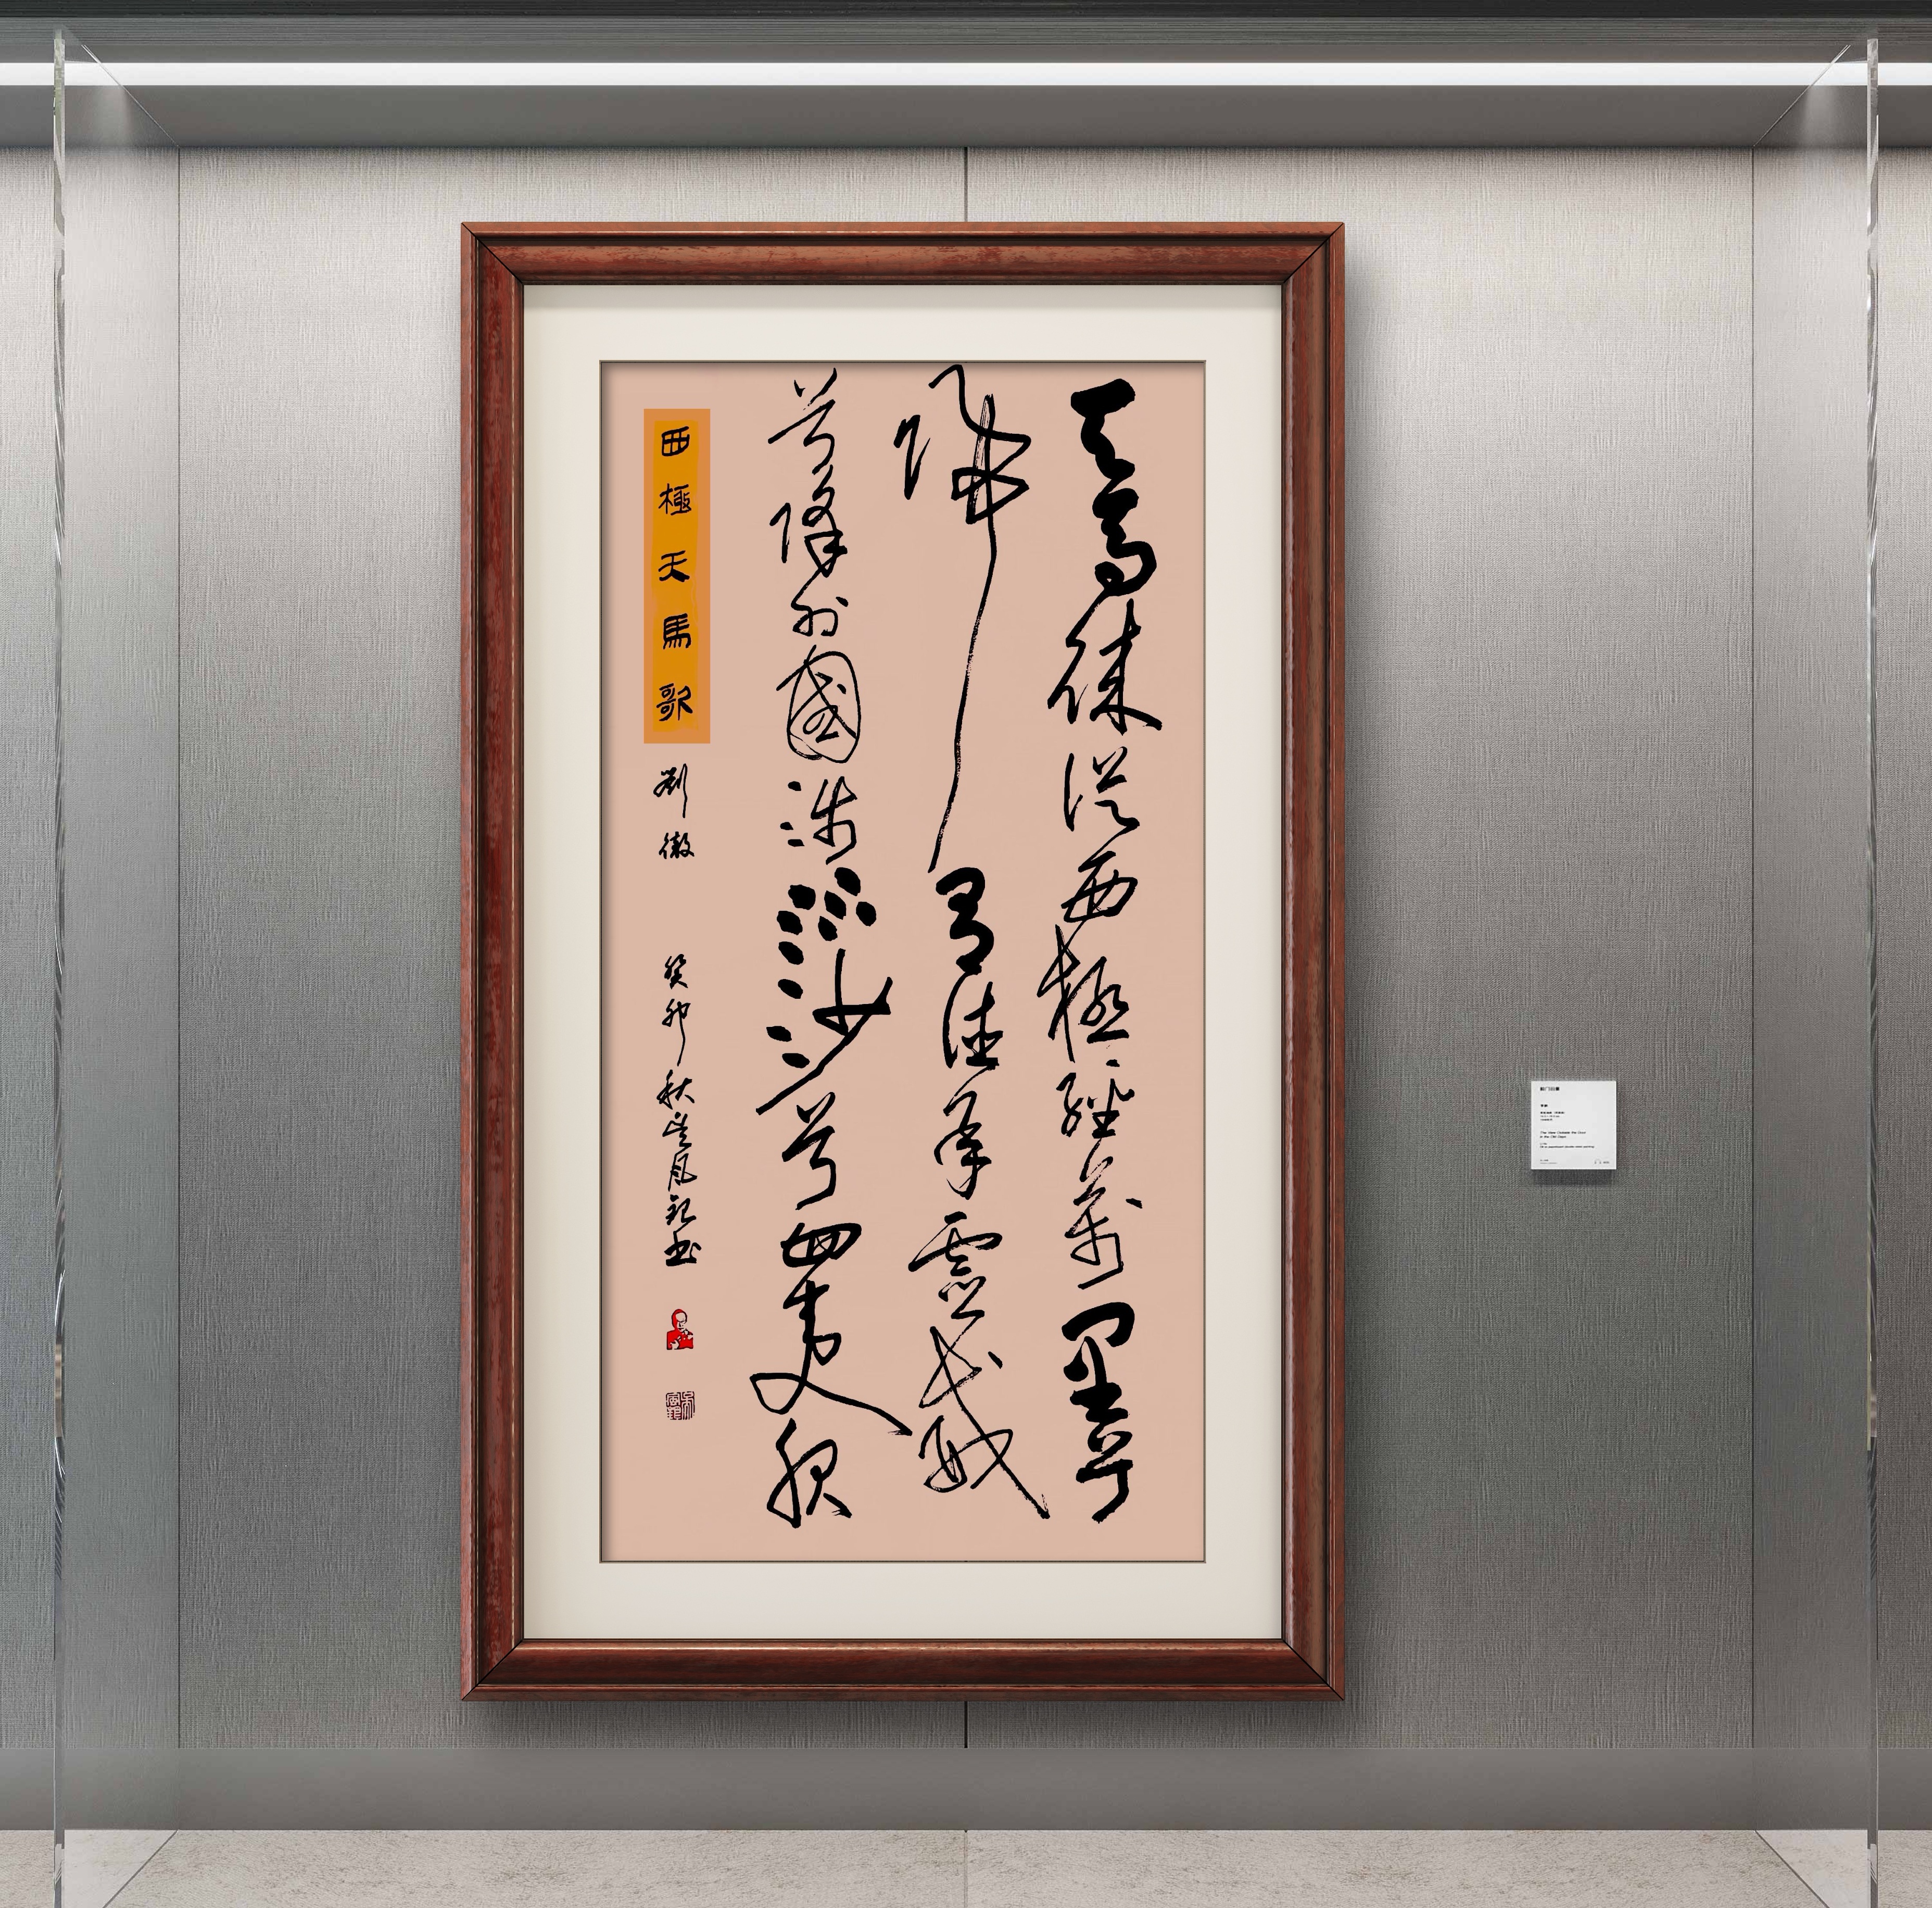 天馬徠從西極經萬里兮
歸有德承靈威
兮降外國涉流沙兮四夷服
西極天馬歌
劉徹
癸卯秋